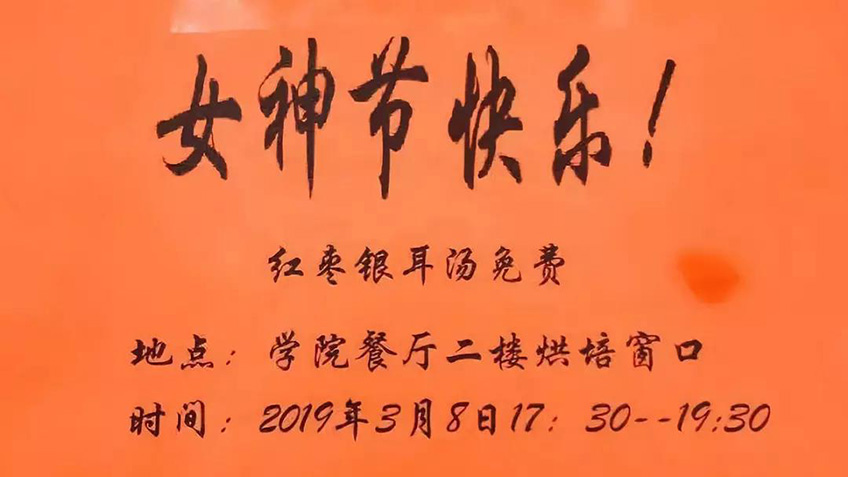 女神节快乐！
红枣银耳汤免费
地点：学院餐厅二楼烘培窗口
时间：2019年3月8日17：30--19:30